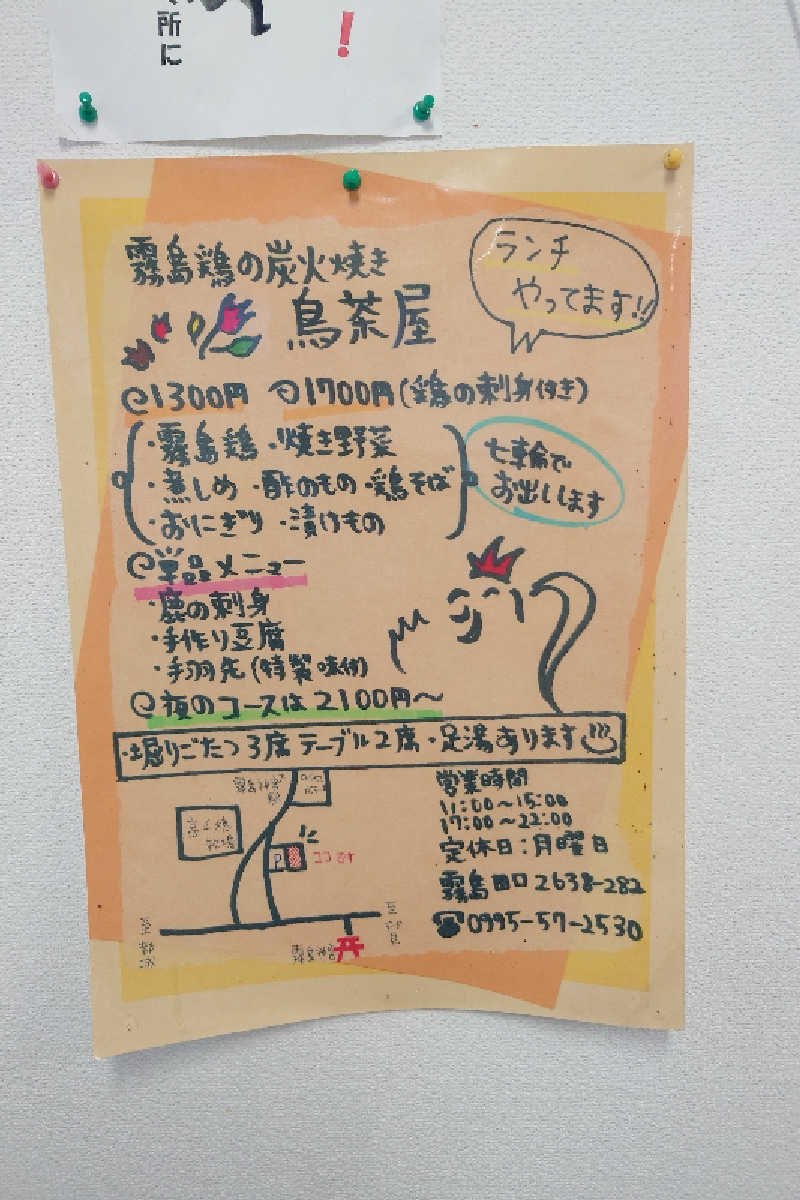 所に
!
霧島鶏の炭火焼き
鳥茶屋
ランチ
やってます!!
1300円 1700円(鶏の刺身付き)
・霧島鶏 ・焼き野菜
・煮しめ ・酢のもの ・鶏そば
・おにぎり ・漬けもの
七輪で
お出しします
単品メニュー
・鹿の刺身
・手作り豆腐
・手羽先(特製味付)
夜のコースは2100円〜
・堀りごたつ3席 テーブル2席 ・足湯あります♨
営業時間
11:00〜15:00
17:00〜22:00
定休日:月曜日
霧島田口2638-282
☎0995-57-2530
P
ココです
霧島神宮
至都城